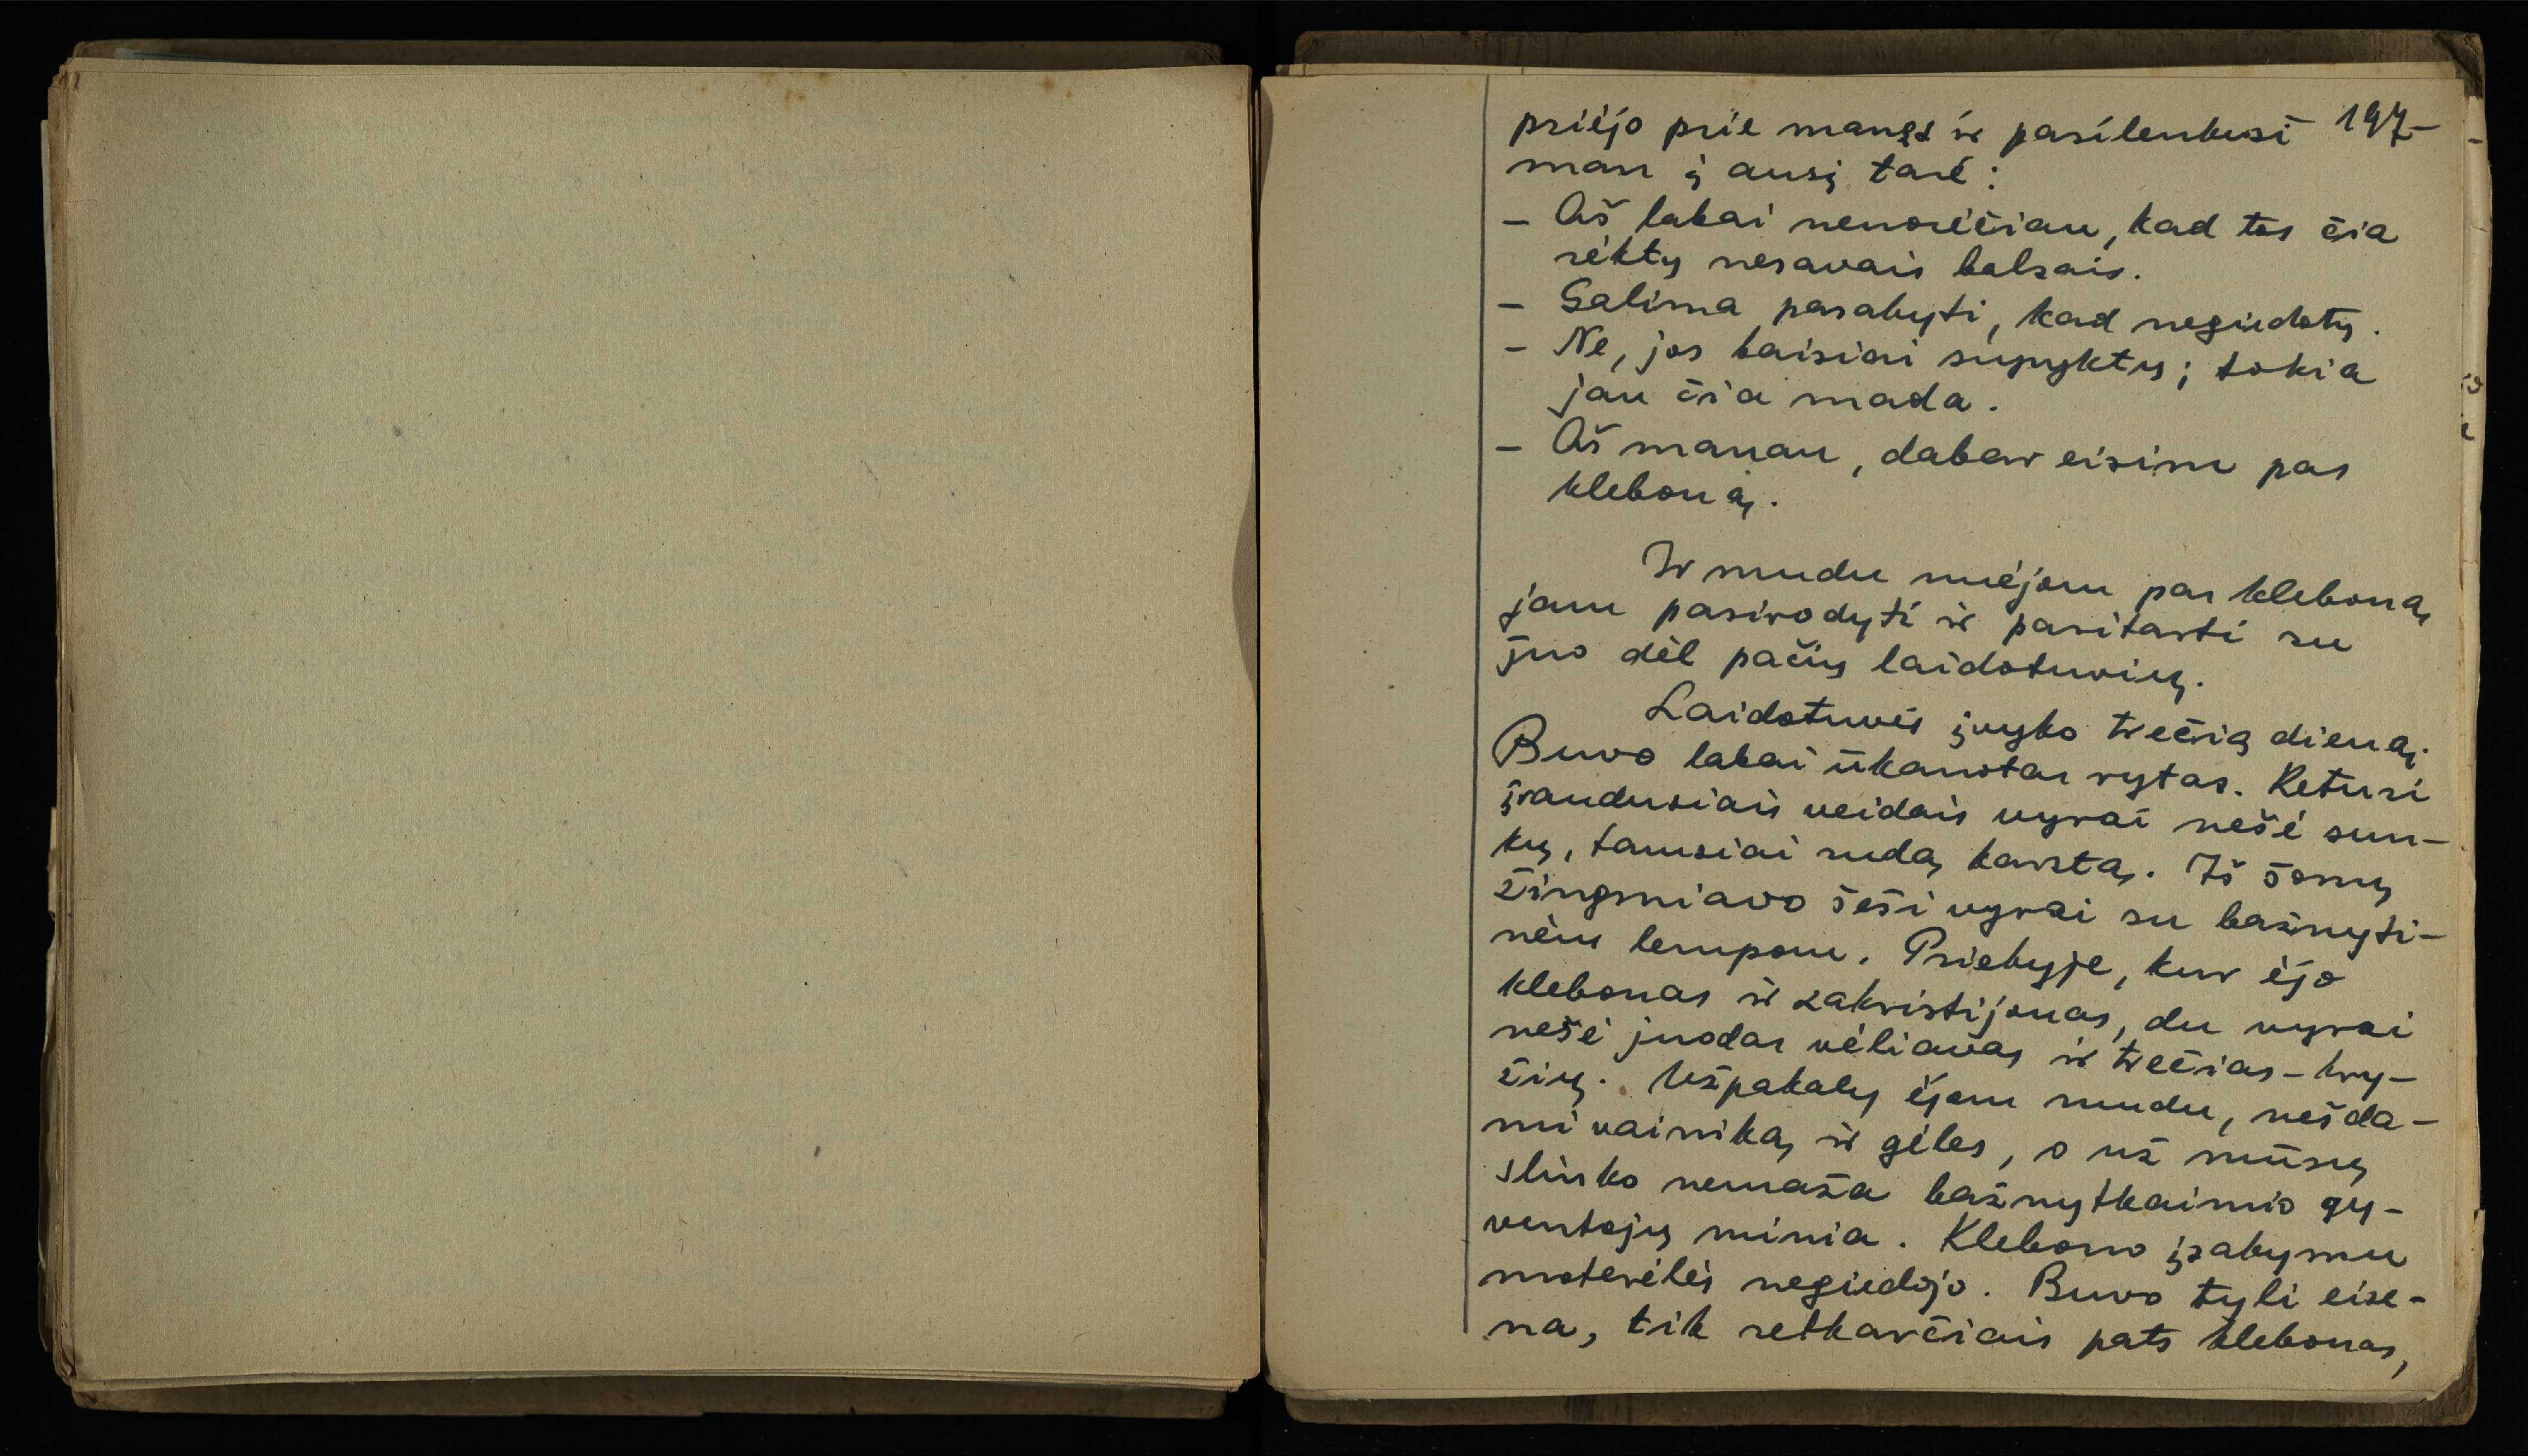 priėjo prie manęs ir pasilenkusi 197-
man į ausį tarė:
- Aš labai nenorėčiau, kad tos čia
rėktų nesavais balsais.
- Galima pasakyti, kad negiedotų.
- Ne, jos baisiai supyktų; tokia
jau čia mada.
- Aš manau, dabar eisim pas
kleboną.
Ir mudu nuėjom pas kleboną
jam pasirodyti ir pasitarti su
juo dėl pačių laidotuvių.
Laidotuvės įvyko trečią dieną.
Buvo labai ūkanotas rytas. Keturi
įraudusiais veidais vyrai nešė sun-
kų, tamsiai rudą karstą. Iš šonų
žingsniavo šeši vyrai su bažnyti-
nėm lempom. Priekyje, kur ėjo
klebonas ir zakristijonas, du vyrai
nešė juodas vėliavas ir trečias - kry-
žių. Užpakaly ėjom mudu, nešda-
mi vainiką ir gėles, o už mūsų
slinko nemaža bažnytkaimio gy-
ventojų minia. Klebono įsakymu
moterėlės negiedojo. Buvo tyli eise-
na, tik retkarčiais pats klebonas,